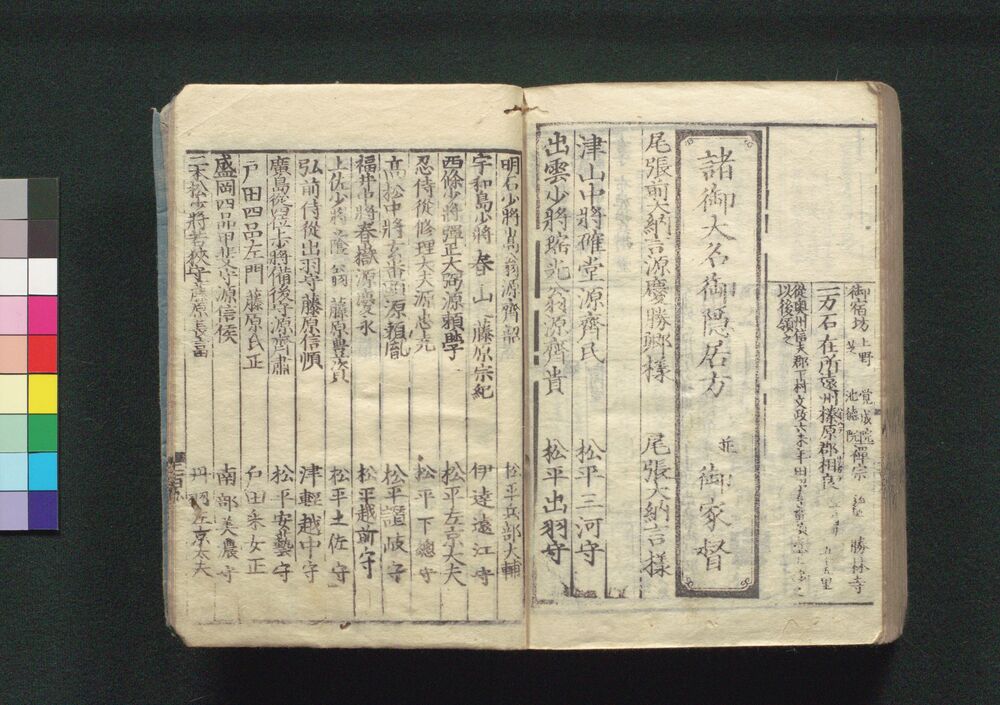 御宿坊 上野 覚成院
芝 池徳院
禅宗 勝林寺
二万石 在所遠州榛原郡相良
従奥州信夫郡下村文政六未年
以後領之
諸御大名御隠居方 並 御家督
尾張前大納言源慶勝郷様 尾張大納言様
津山中将確堂源斉民 松平三河守
出雲少将瑞光翁源齊貴 松平出羽守
明石少将 翁源齊韶 松平兵部大輔
宇和島少将 春山 藤原宗紀 伊達遠江守
西條少将弾正大弼源頼学 松平左京大夫
忍侍従修理大夫源忠尭 松平下總守
高松中将玄蕃頭源頼胤 松平讃岐守
福井中将春嶽源慶永 松平越前守
土佐少将 翁 藤原豊資 松平土佐守
弘前侍従出羽守藤原信順 津輕越中守
廣島従四位少将備後守源齊肅 松平安藝守
戸田四品左門 藤原氏正 戸田采女正
盛岡四品甲斐守源信侯 南部美濃守
二本松少将若狭守藤原長富 丹羽左京大夫